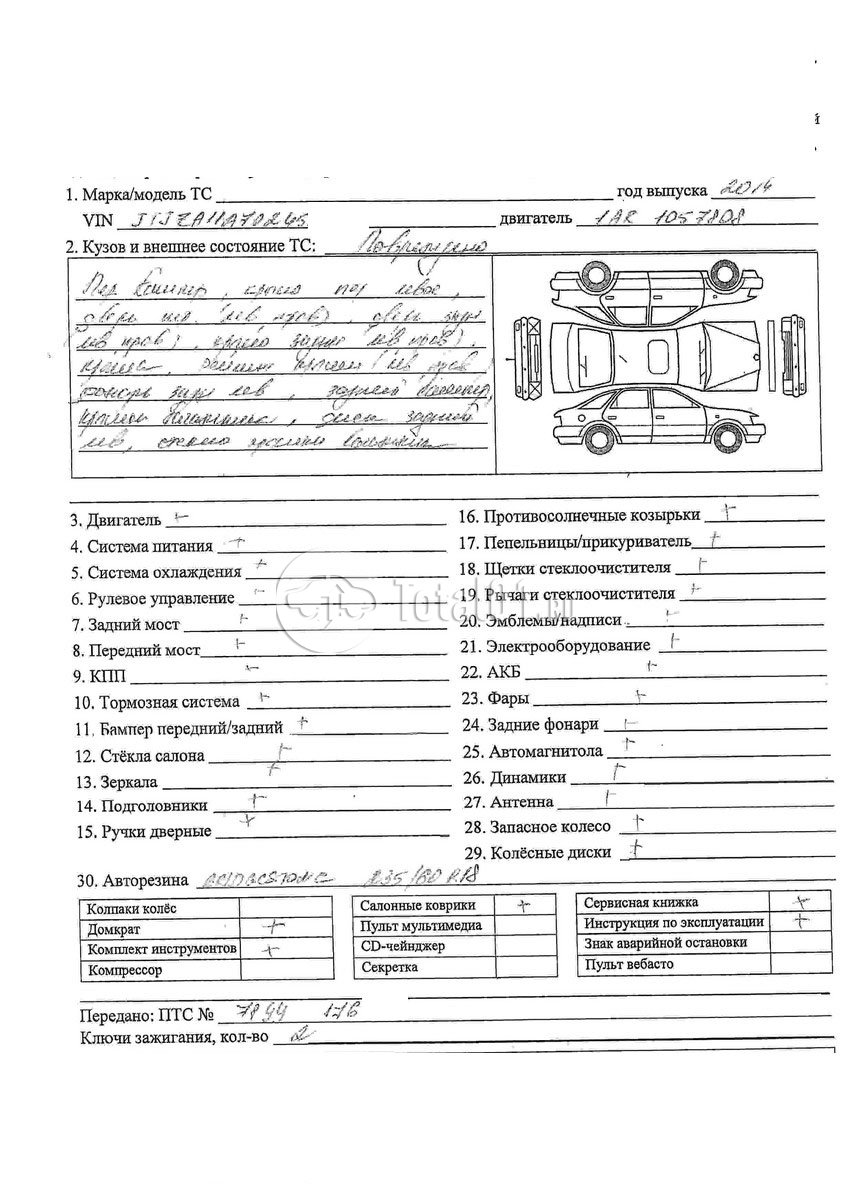 1. Марка/модель ТС год выпуска 2014
VIN JTJZA11A70245 двигатель 1AR 1057808
2. Кузов и внешнее состояние ТС: Повреждено
Пер бампер, крыло пер левое,
дверь (лев прав), дверь задн
(лев прав), крыло задн (лев прав),
крыша,
фонарь задн лев, задний бампер,
диск задний
лев, стекло
3. Двигатель +
4. Система питания +
5. Система охлаждения +
6. Рулевое управление +
7. Задний мост +
8. Передний мост +
9. КПП +
10. Тормозная система +
11. Бампер передний/задний +
12. Стёкла салона +
13. Зеркала +
14. Подголовники +
15. Ручки дверные +
16. Противосолнечные козырьки +
17. Пепельницы/прикуриватель +
18. Щетки стеклоочистителя +
19. Рычаги стеклоочистителя +
20. Эмблемы/надписи +
21. Электрооборудование +
22. АКБ +
23. Фары +
24. Задние фонари +
25. Автомагнитола +
26. Динамики +
27. Антенна +
28. Запасное колесо +
29. Колёсные диски +
Total01.ru
30. Авторезина 235/60 R18
Колпаки колёс
Домкрат +
Комплект инструментов +
Компрессор
Салонные коврики +
Пульт мультимедиа
CD-чейнджер
Секретка
Сервисная книжка +
Инструкция по эксплуатации +
Знак аварийной остановки
Пульт вебасто
Передано: ПТС № 7899 176
Ключи зажигания, кол-во 2